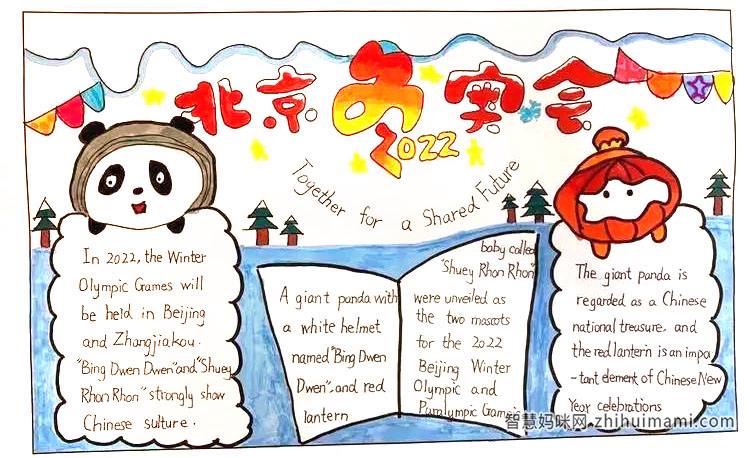 北京冬奥会
2022
Together for a Shared Future
In 2022, the Winter
Olympic Games will
be held in Beijing
and Zhangjiakou.
"Bing Dwen Dwen" and "Shuey
Rhon Rhon" strongly show
Chinese sulture.
A giant panda with
a white helmet
named "Bing Dwen
Dwen", and red
lantern
baby called
"Shuey Rhon Rhon"
were unveiled as
the two mascots
for the 2022
Beijing Winter
Olympic and
Paralympic Games
The giant panda is
regarded as a Chinese
national treasure. and
the red lantern is an impa
-tant element of Chinese New
Year celebrations
智慧妈咪网.zhihuimami.com